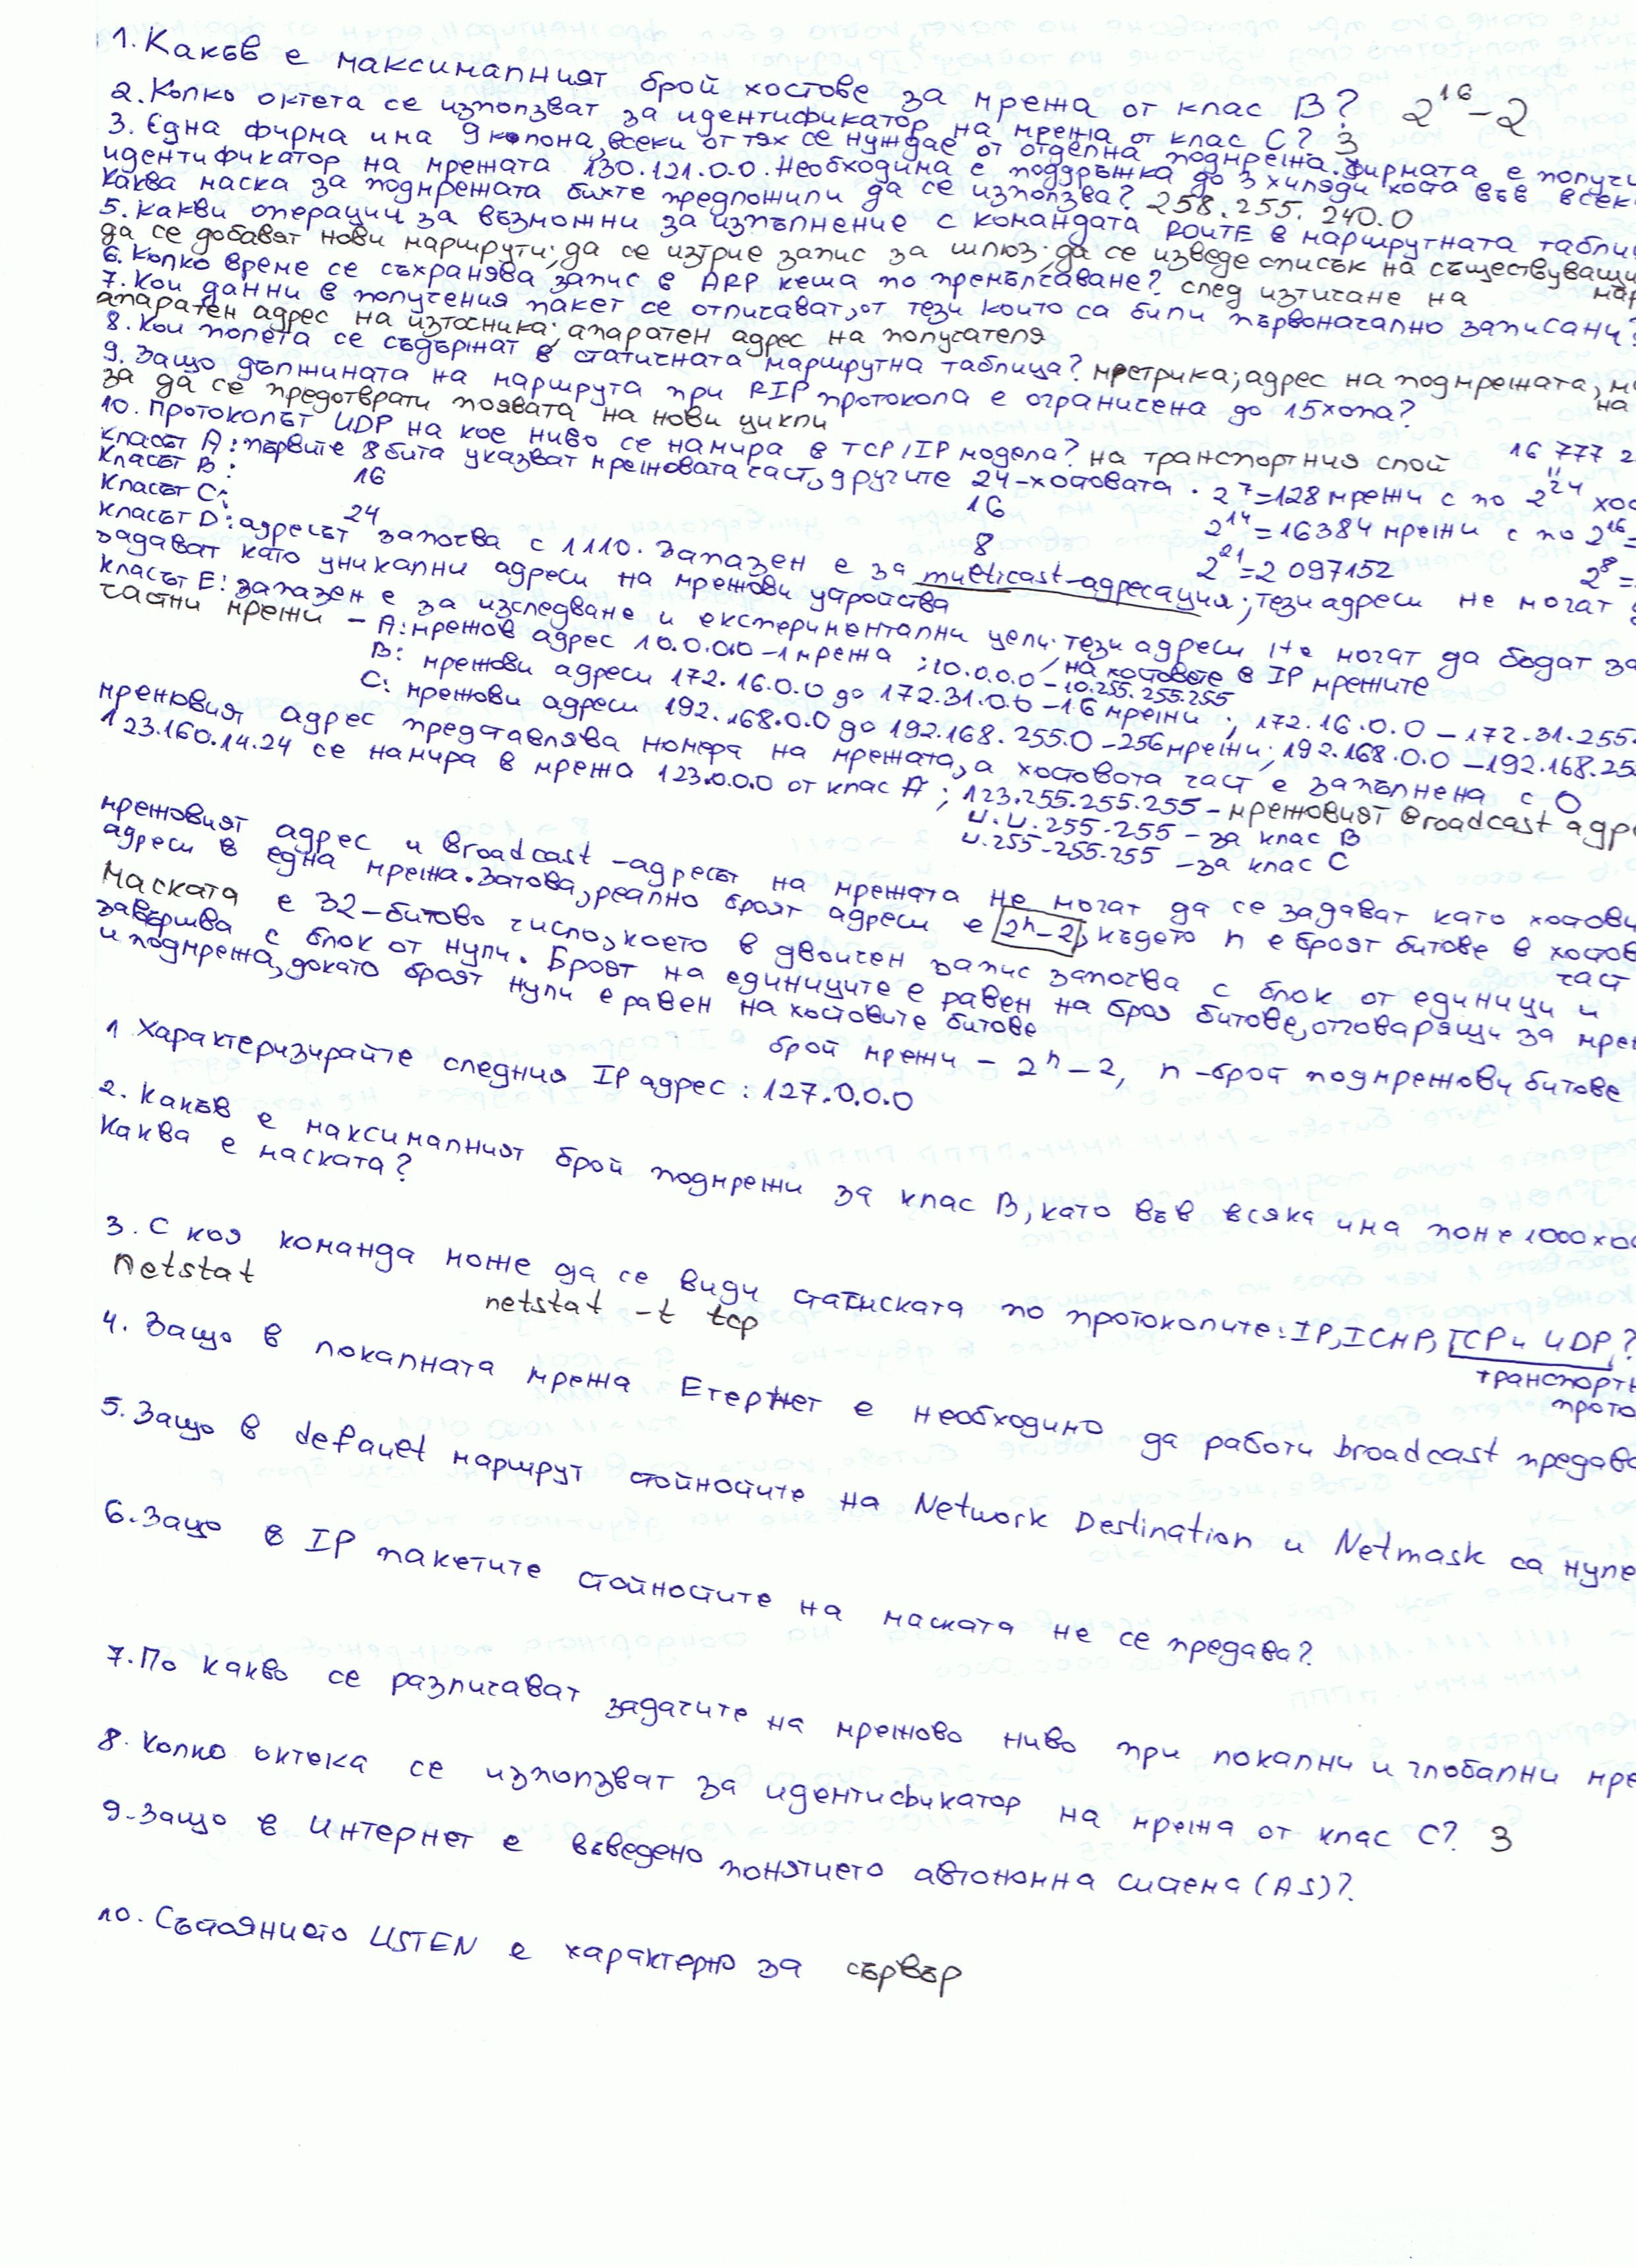 1. Какъв е максималният брой хостове за мрежа от клас B? 2^16-2
2. Колко октета се използват за идентификатор на мрежа от клас C? 3
3. Една фирма има 9 клона, всеки от тях се нуждае от отделна подмрежа. Фирмата е получи
идентификатор на мрежата 130.121.0.0. Необходима е поддръжка до 3 хиляди хоста във всек
Каква маска за подмрежата бихте предложили да се използва? 258.255.240.0
5. Какви операции за възможни за изпълнение с командата ROUTE в маршрутната табли
да се добавят нови маршрути; да се изтрие запис за шлюз; да се изведе списък на съществуващи
мар
6. Колко време се съхранява запис в ARP кеша по премълчаване? след изтичане на
7. Кои данни в получения пакет се отличават, от тези които са били първоначално записани?
апаратен адрес на източника; апаратен адрес на получателя
8. Кои полета се съдържат в статичната маршрутна таблица? метрика; адрес на подмрежата, м
на
9. Защо дължината на маршрута при RIP протокола е ограничена до 15 хопа?
за да се предотврати появата на нови цикли
10. Протоколът UDP на кое ниво се намира в TCP/IP модела? на транспортния слой
16 777 2
класът A: първите 8 бита указват мрежовата част, другите 24-хостовата. 2^7=128 мрежи с по 2^24 хос
Класът B: 16 16 2^14=16384 мрежи с по 2^16=
Класът C: 24 8 2^21=2 097152 2^8=
класът D: адресът започва с 1110. Запазен е за multicast-адресация; тези адреси не могат
задават като уникални адреси на мрежови устройства
класът E: запазен е за изследване и експериментални цели. тези адреси не могат да бъдат за
на хостовете в IP мрежите
частни мрежи - A: мрежов адрес 10.0.0.0 -1 мрежа ; 10.0.0.0 - 10.255.255.255
B: мрежови адреси 172.16.0.0 до 172.31.0.0 -16 мрежи ; 172.16.0.0 - 172.31.255.
C: мрежови адреси 192.168.0.0 до 192.168.255.0 -256 мрежи; 192.168.0.0 -192.168.25
мрежовият адрес представлява номера на мрежата, а хостовата част е запълнена с 0
123.160.14.24 се намира в мрежа 123.0.0.0 от клас A ; 123.255.255.255 - мрежовият broadcast адр
и.и.255.255 - за клас B
и.255.255.255 - за клас C
мрежовият адрес и broadcast-адресът на мрежата не могат да се задават като хостови
адреси в една мрежа. Затова, реално броят адреси е 2^n-2, където n е броят битове в хостов
част
Маската е 32-битово число, което в двоичен запис започва с блок от единици и
завършва с блок от нули. Броят на единиците е равен на броя битове, отговарящи за мре
и подмрежа, докато броят нули е равен на хостовите битове
брой мрежи - 2^n-2, n-брой подмрежови битове
1. Характеризирайте следния IP адрес: 127.0.0.0
2. Какъв е максималният брой подмрежи за клас B, като във всяка има поне 1000 хо
Каква е маската?
3. С коя команда може да се види статиската по протоколите: IP, ICMP, TCP и UDP?
netstat netstat -t tcp
транспортн
прото
4. Защо в локалната мрежа Етернет е необходимо да работи broadcast предав
5. Защо в default маршрут стойностите на Network Destination и Netmask са нуле
6. Защо в IP пакетите стойностите на маската не се предава?
7. По какво се различават задачите на мрежово ниво при локални и глобални мре
8. Колко октека се използват за идентификатор на мрежа от клас C? 3
9. Защо в Интернет е въведено понятието автономна система (AS)?
10. Състоянието LISTEN е характерно за сървър